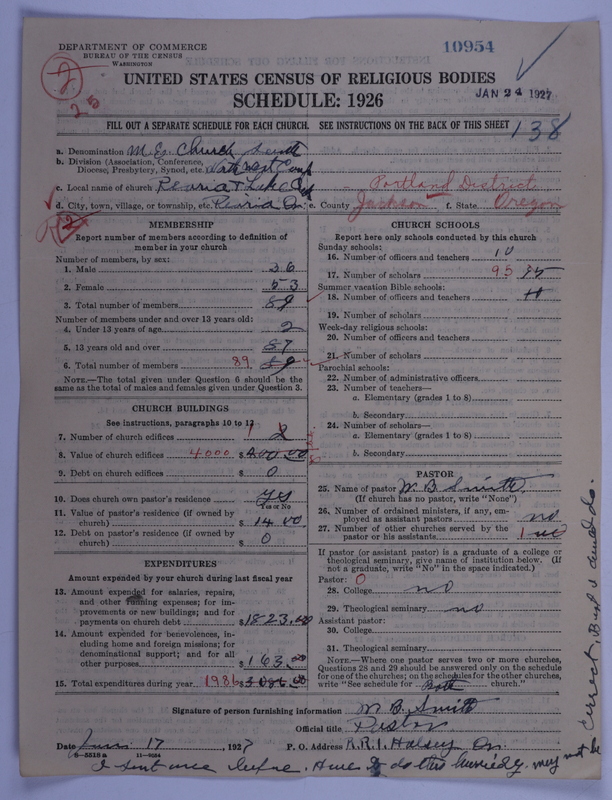 DEPARTMENT OF COMMERCE
BUREAU OF THE CENSUS
WASHINGTON
10954
UNITED STATES CENSUS OF RELIGIOUS BODIES
SCHEDULE: 1926
JAN 24 1927
2
25
FILL OUT A SEPARATE SCHEDULE FOR EACH CHURCH. SEE INSTRUCTIONS ON THE BACK OF THIS SHEET
138
a. Denomination M. E. Church South
b. Division (Association, Conference, Diocese, Presbytery, Synod, etc. Northwest Conf
c. Local name of church Peoria & Lake C
Portland District
d. City, town, village, or township, etc. Peoria Or. e. County Jackson f. State. Oregon
MEMBERSHIP
Report number of members according to definition of member in your church
Number of members, by sex:
1. Male 36
2. Female 53
3. Total number of members 89
Number of members under and over 13 years old:
4. Under 13 years of age 2
5. 13 years old and over 87
6. Total number of members 89 89
NOTE.—The total given under Question 6 should be the same as the total of males and females given under Question 3.
CHURCH BUILDINGS
See instructions, paragraphs 10 to 12
7. Number of church edifices 1 2
8. Value of church edifices 4000 $
9. Debt on church edifices $ 0
10. Does church own pastor's residence yes
Yes or No
11. Value of pastor's residence (if owned by church) $ 1400
12. Debt on pastor's residence (if owned by church) $ 0
EXPENDITURES
Amount expended by your church during last fiscal year
13. Amount expended for salaries, repairs, and other running expenses; for improvements or new buildings; and for payments on church debt $ 1823.00
14. Amount expended for benevolences, including home and foreign missions; for denominational support; and for all other purposes $ 163.00
15. Total expenditures during year 1986 $
CHURCH SCHOOLS
Report here only schools conducted by this church
Sunday schools:
16. Number of officers and teachers 10
17. Number of scholars 95
Summer vacation Bible schools:
18. Number of officers and teachers
19. Number of scholars
Week-day religious schools:
20. Number of officers and teachers
21. Number of scholars
Parochial schools:
22. Number of administrative officers
23. Number of teachers—
a. Elementary (grades 1 to 8)
b. Secondary
24. Number of scholars—
a. Elementary (grades 1 to 8)
b. Secondary
PASTOR
25. Name of pastor W. B. Smith
(If church has no pastor, write "None")
26. Number of ordained ministers, if any, employed as assistant pastors no
27. Number of other churches served by the pastor or his assistants 1
If pastor (or assistant pastor) is a graduate of a college or theological seminary, give name of institution below. (If not a graduate, write "No" in the space indicated.)
Pastor: 0
28. College no
29. Theological seminary no
Assistant pastor:
30. College
31. Theological seminary
NOTE.—Where one pastor serves two or more churches, Questions 28 and 29 should be answered only on the schedule for one of the churches; on the schedules for the other churches, write "See schedule for Both church."
Signature of person furnishing information W. B. Smith
Official title Pastor
Date Jan. 17, 1927 P. O. Address R.R.1, Halsey Or.
8-5818 a
I sent once before. Have to do this hurriedly. may not be
correct. But I